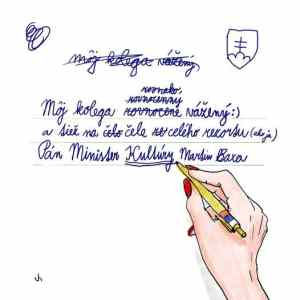 môj kolega vážený
rovnako
rovnocenný
Môj kolega rovnocene vážený:)
a tiež na čele celého rezortu (ako ja)
Pán Minister Kultúry Martin Baxa